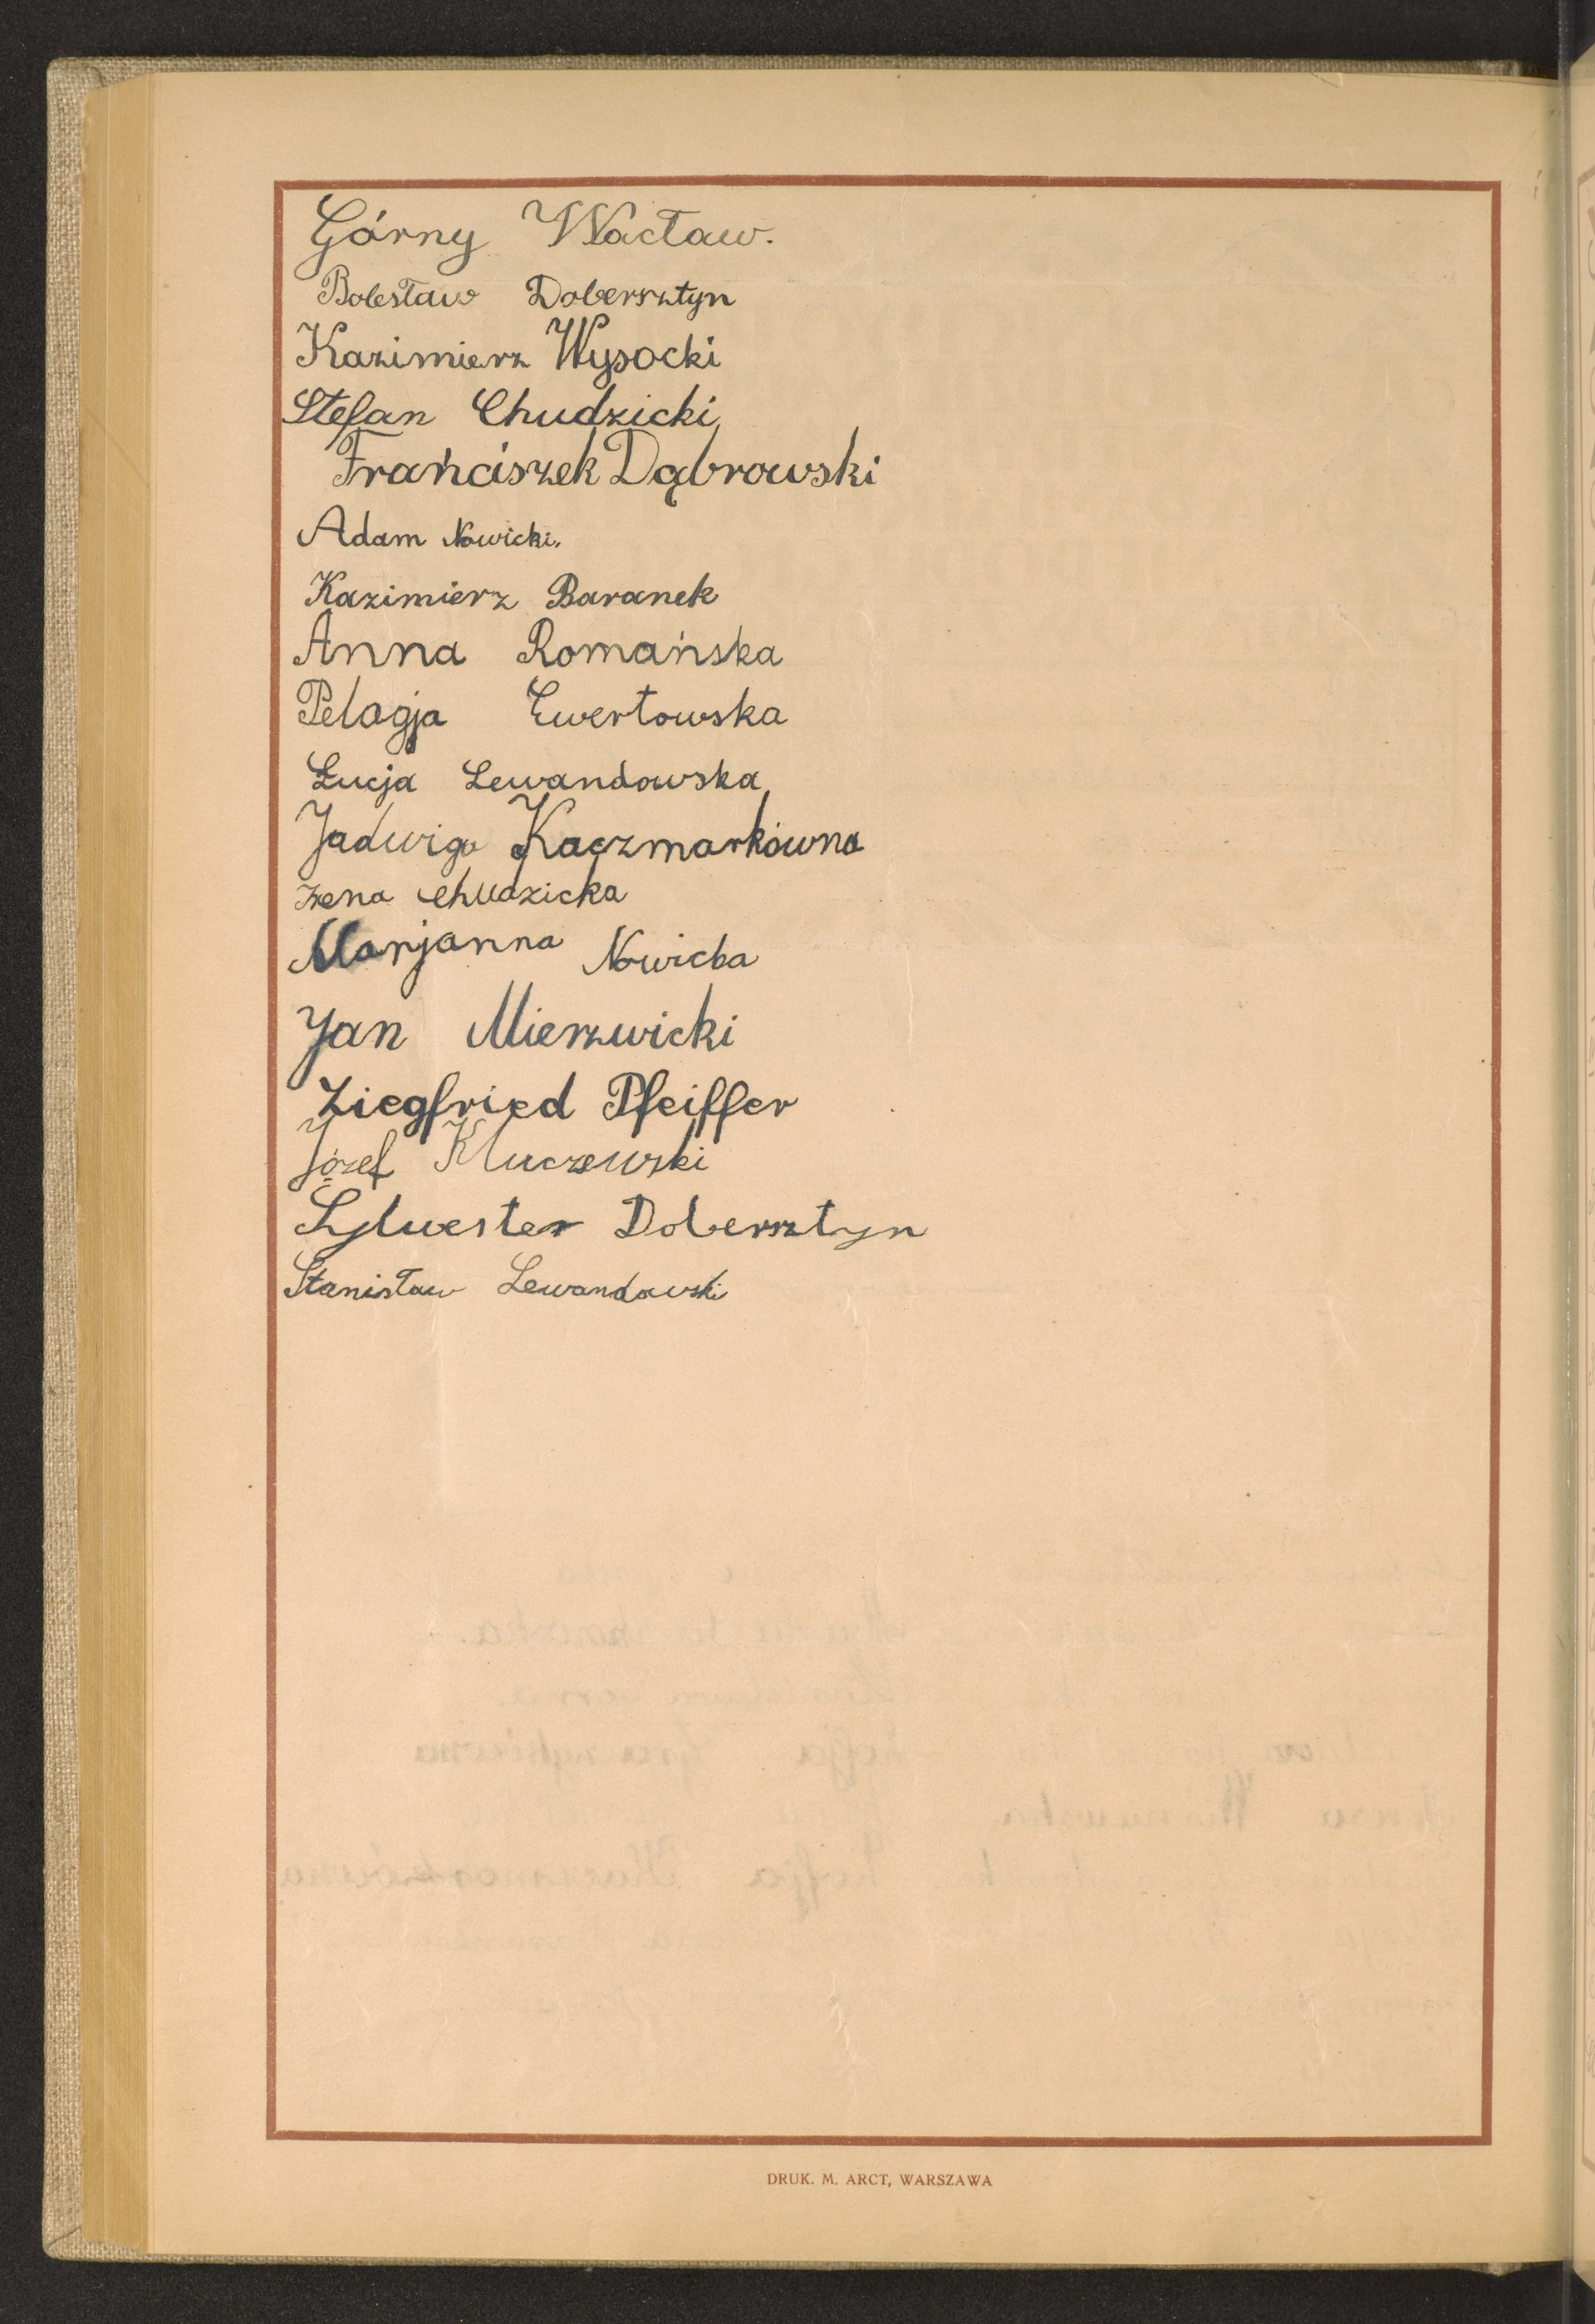 Górny Wacław.
Bolesław Dobersztyn
Kazimierz Wysocki
Stefan Chudzicki
Franciszek Dąbrowski
Adam Nowicki.
Kazimierz Baranek
Anna Romańska
Pelagja Ewertowska
Łucja Lewandowska
Jadwiga Kaczmarkówna
Irena Chudzicka
Marjanna Nowicka
Jan Mierzwicki
Ziegfried Pfeiffer
Józef Kluczewski
Sylwester Dobersztyn
Stanisław Lewandowski
DRUK. M. ARCT, WARSZAWA